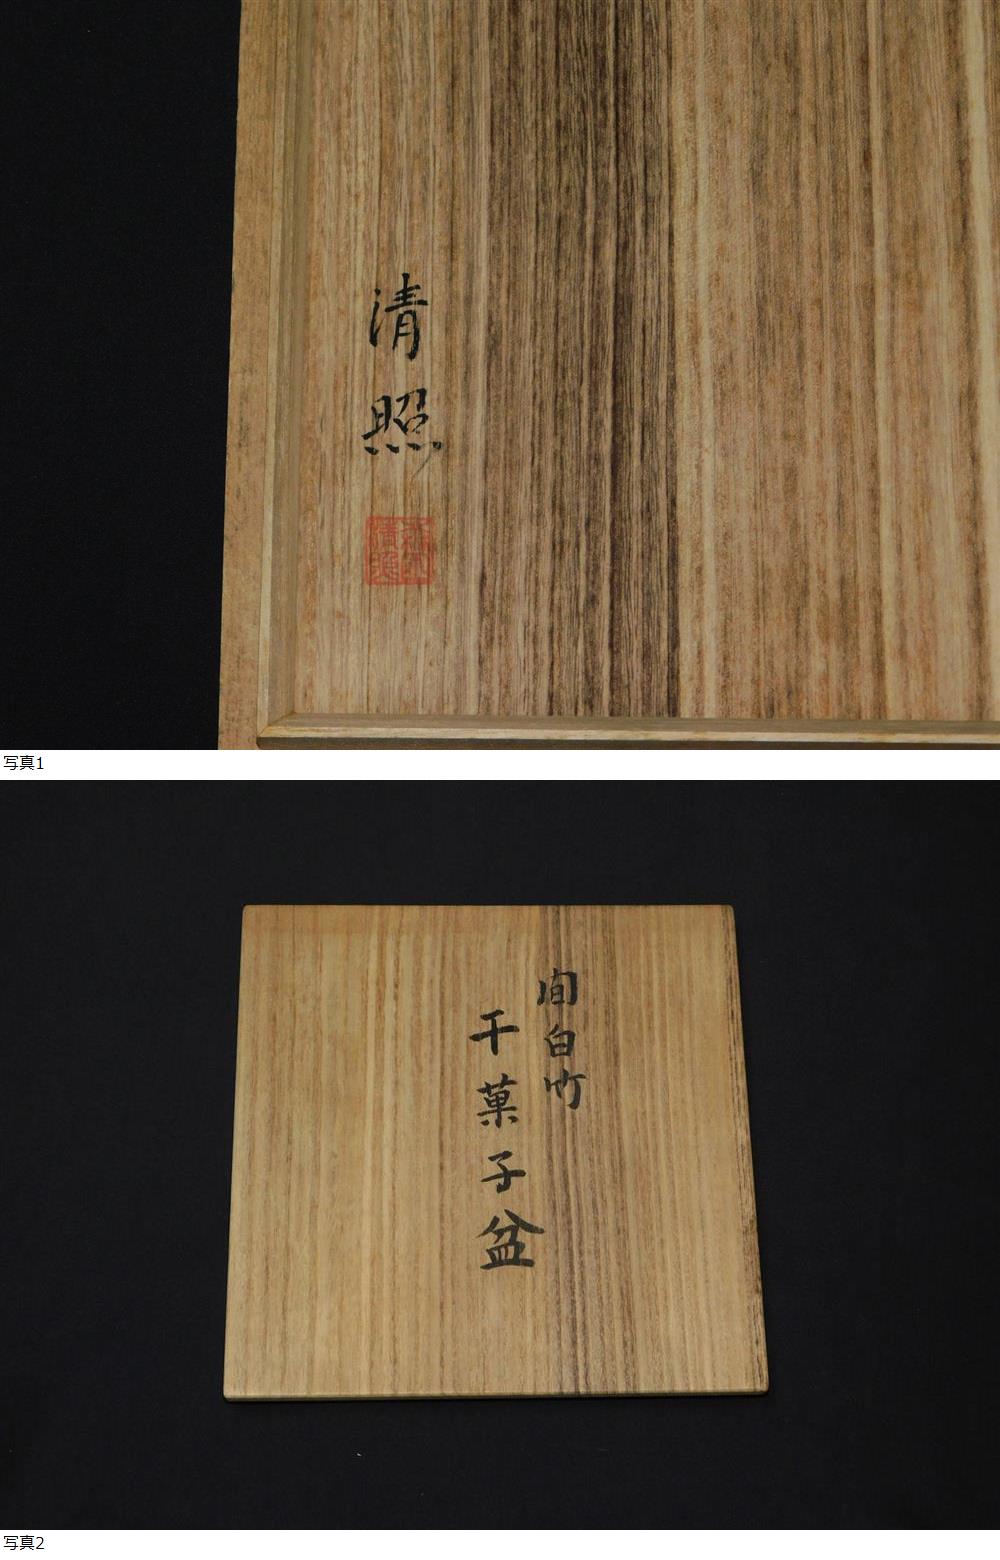 清照
写真1
間白竹
干菓子盆
写真2